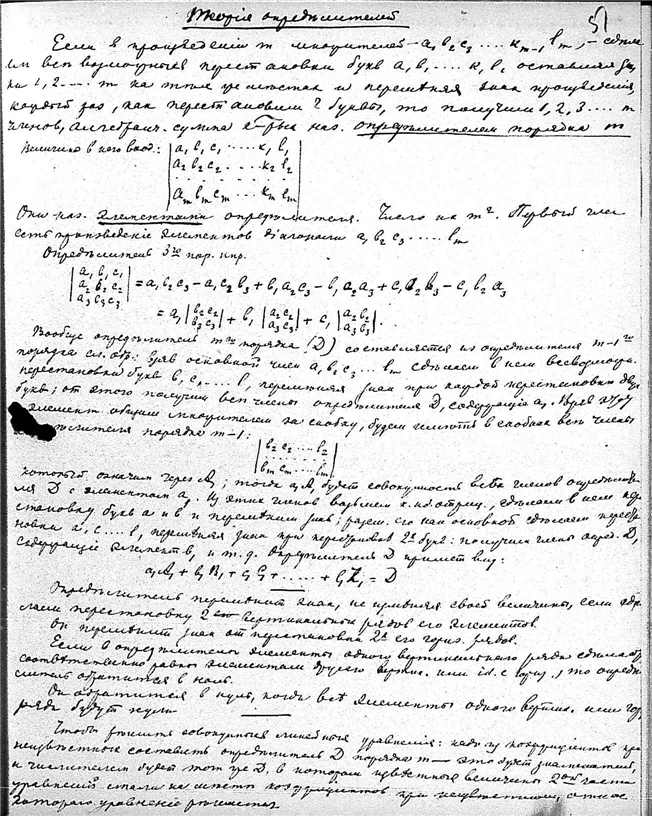 Теорія опредѣлителей
51
Если в произведеніи m множителей – a₁ b₂ c₃ .... kₘ₋₁ lₘ, –
всевозможныя перестановки букв a, b, .... k, l, оставляя
1, 2 .... m на том же местах и перемѣняя знак произведенія
каждый раз, как перестановим 2 буквы, то получим 1, 2, 3 .... m
членов, алгебраич. сумма к-рых наз. опредѣлителем порядка m
Величины в него вход.: | a₁ b₁ c₁ ..... k₁ l₁ |
| a₂ b₂ c₂ ..... k₂ l₂ |
| aₘ bₘ cₘ .... kₘ lₘ |
Они наз. элементами опредѣлителя. Число их m². Первый член
есть произведеніе элементов діагонали a₁ b₂ c₃ ..... lₘ
Опредѣлитель 3го пор. нпр.
| a₁ b₁ c₁ |
| a₂ b₂ c₂ | = a₁b₂c₃ – a₁c₂b₃ + b₁a₂c₃ – b₁a₂a₃ + c₁a₂b₃ – c₁b₂a₃
| a₃ b₃ c₃ |
= a₁ | b₂ c₂ / b₃ c₃ | + b₁ | a₂ c₂ / a₃ c₃ | + c₁ | a₂ b₂ / a₃ b₃ |.
Вообще опредѣлитель mго порядка (D) составляется из опредѣлителя m–1го
порядка сл. обр: взяв основной член a₁ b₂ c₃ ... lₘ сдѣлаем в нем всевозмож.
перестановки букв b, c, ... l, перемѣняя знак при каждой перестановки двух
букв; от этого получим всѣ члены опредѣлителя D, содержащіе a₁. Взяв этот
элемент общим множителем за скобку, будем имѣть в скобках всѣ члены
порядка m–1:
| b₂ c₂ .... l₂ |
| bₘ cₘ .... lₘ |
который означим через A₁; тогда a₁A₁ будет совокупность всѣх членов опредѣли-
ля D с элементом a₁. Из этих членов возьмем к. нб. отриц., сдѣлаем в нем пере
становку букв a и b и перемѣним знак; разсм. его как основной сдѣлаем переста
новки a, c .... l, перемѣняя знак при перестановк 2х букв: получим члены опред. D,
содержащіе элемент b, и т. д. Опредѣлитель D примет вид:
a₁A₁ + b₁B₁ + c₁C₁ + ...... + l₁L₁ = D
Опредѣлитель перемѣнит знак, не измѣняя своей величины, если сдѣ
лаем перестановку 2 вертикальных рядов его элементов
Он перемѣнит знак от перестановки 2х его гориз. рядов.
Если в опредѣлителѣ элементы одного вертикальнаго ряда сдѣлать
соотвѣтственно равны элементам другого вертик. или id. с гориз., то опредѣ
литель обратится в ноль.
Он обратится в нуль, когда всѣ элементы одного вертик. или гор.
ряда будут нули
Чтобы рѣшить совокупныя линейныя уравненія: надо из коэффиціентов при
неизвѣстных составить опредѣлитель D порядка m – это будет знаменатель,
а числителем будет тот же D, в котором извѣстныя величины 2ой части
уравненій стали на мѣсто коэффиціентов при неизвѣстном, относ
котораго уравненіе рѣшается.